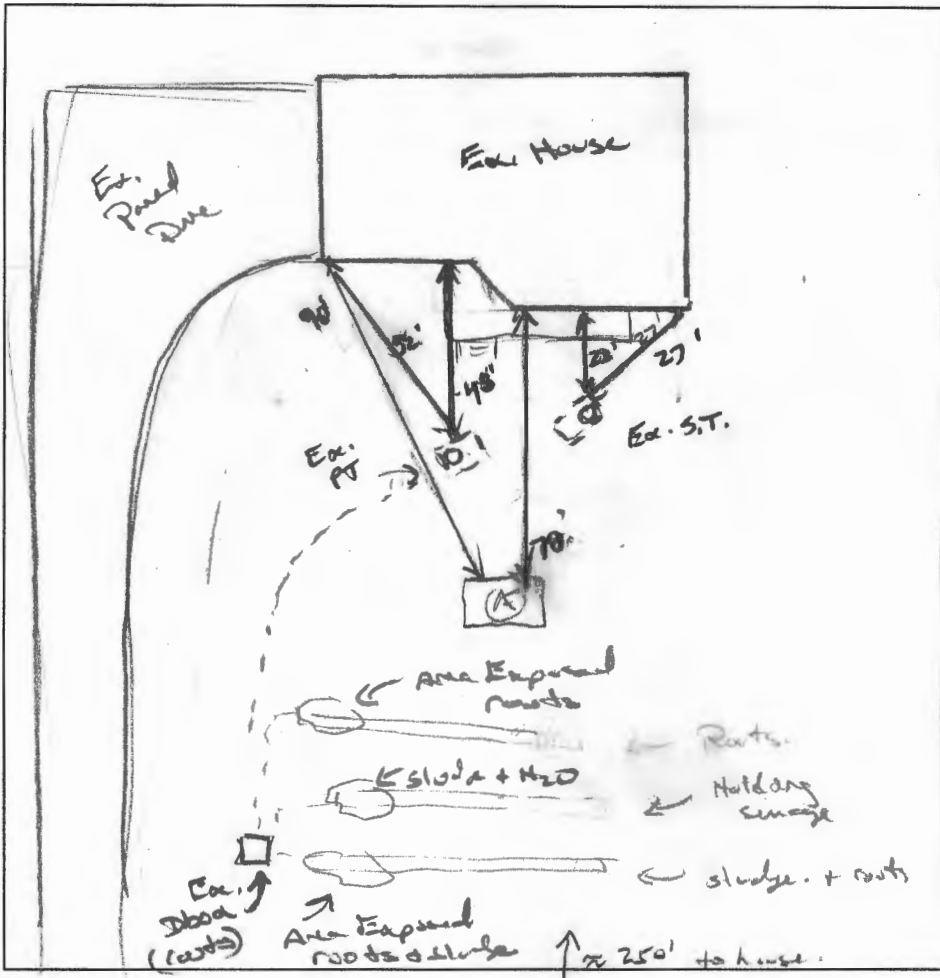 Ex. House
Ex.
Paved
Drive
90'
52'
48'
22'
27'
27'
Ex. S.T.
Ex.
PT
78'
A
Area Exposed
roots
Roots.
sludge + H2O
Holding
sewage
sludge. + roots
Ex.
Dbox
(roots)
Area Exposed
roots & sludge
≈ 250' to house.